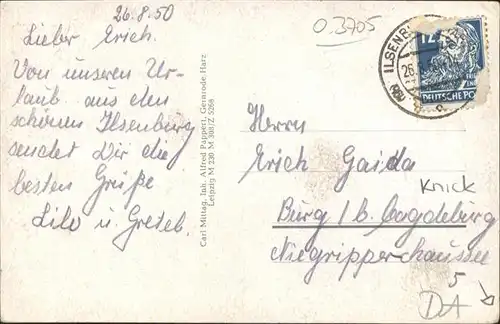 26.8.50
Lieber Erich.
Von unseren Ur-
laub aus den
schönen Ilsenburg
sendet Dir die
besten Grüße
Lilo u. Gretel.
Carl Mittag, Inh. Alfred Pappert, Gernrode/Harz
Leipzig M 230 M 308/Z 5268
0.3705
ILSENB
26.
12
DEUTSCHE PO
Herrn
Erich Gaida
Knick
Burg / b. Magdeburg
Niegripper chaussee
5
DA